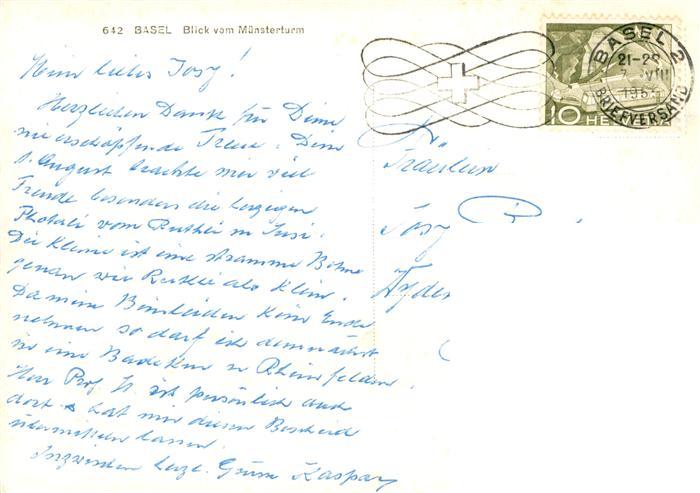 642 BASEL Blick vom Münsterturm
BASEL 2
21-
VIII
BRIEFVERSAND
10 HELVETIA
Mein liebes Josy!
Herzlichen Dank für Deine
nie erschöpfende Treue. Dein
1. August brachte mir viel
Freude besonders die
vom Ruthli in
Die Kleine ist eine stramme
genau wie Ruthli als Klein.
Da meine Beinleiden kein Ende
nehmen so darf ich demnächst
in eine Badekur n Rheinfelden.
Herr Prof. ist persönlich auch
dort & hat mir diesen Bescheid
übermitteln lassen.
Inzwischen herzl. Grüsse Kaspar
Fräulein
Josy